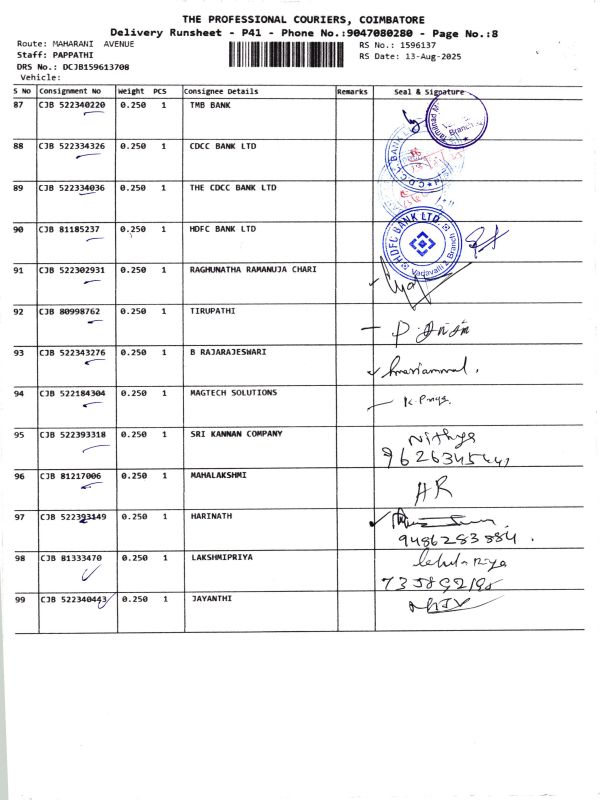 THE PROFESSIONAL COURIERS, COIMBATORE
Delivery Runsheet - P41 - Phone No.:9047080280 - Page No.:8
Route: MAHARANI AVENUE RS No.: 1596137
Staff: PAPPATHI RS Date: 13-Aug-2025
DRS No.: DCJB159613708
Vehicle:
S No Consignment No Weight PCS Consignee Details Remarks Seal & Signature
87 CJB 522340220 0.250 1 TMB BANK
Branch
88 CJB 522334326 0.250 1 CDCC BANK LTD
89 CJB 522334036 0.250 1 THE CDCC BANK LTD
90 CJB 81185237 0.250 1 HDFC BANK LTD
HDFC BANK LTD.
Vadavalli Branch
91 CJB 522302931 0.250 1 RAGHUNATHA RAMANUJA CHARI
92 CJB 80998762 0.250 1 TIRUPATHI
93 CJB 522343276 0.250 1 B RAJARAJESWARI
94 CJB 522184304 0.250 1 MAGTECH SOLUTIONS
95 CJB 522393318 0.250 1 SRI KANNAN COMPANY Nithya
96 CJB 81217006 0.250 1 MAHALAKSHMI
97 CJB 522393149 0.250 1 HARINATH
9486283884.
98 CJB 81333470 0.250 1 LAKSHMIPRIYA
99 CJB 522340443 0.250 1 JAYANTHI